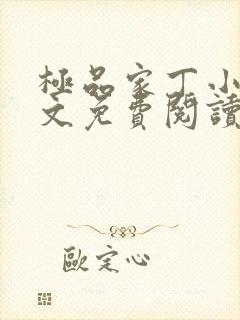 極品家丁小
文免費閱讀
歐定心